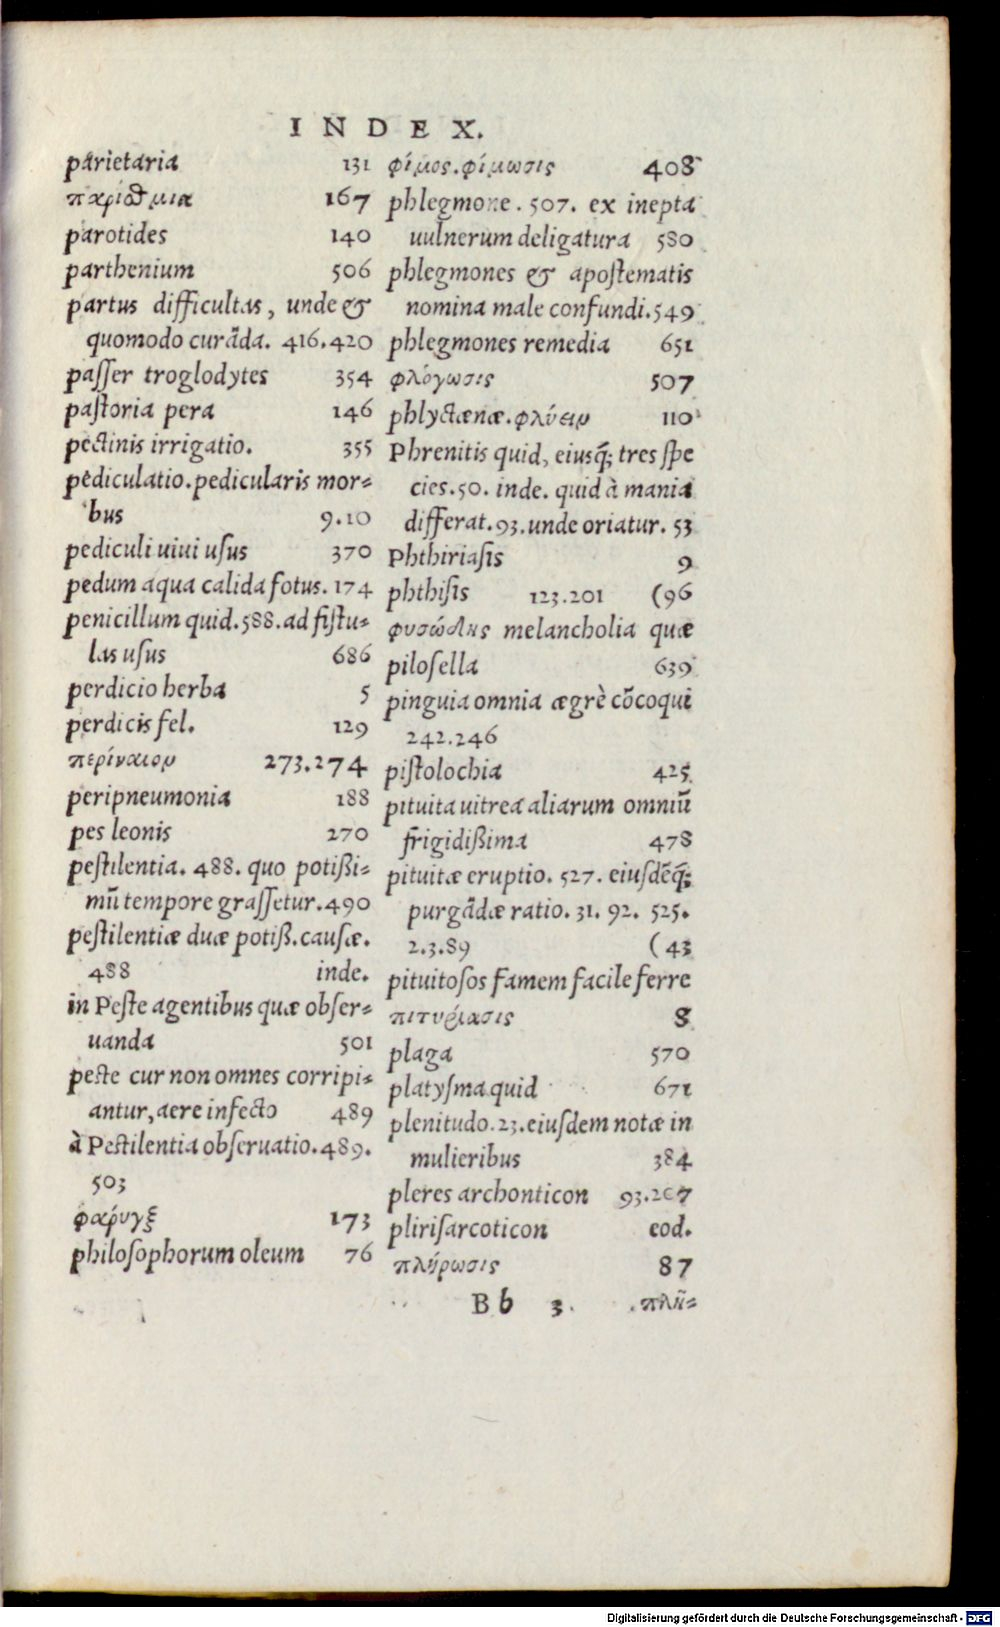 INDEX.
parietaria 131
παρίσθμια 167
parotides 140
parthenium 506
partus difficultas, unde &
quomodo curāda. 416.420
paſſer troglodytes 354
paſtoria pera 146
pectinis irrigatio. 355
pediculatio.pedicularis mor=
bus 9.10
pediculi uiui uſus 370
pedum aqua calida fotus. 174
penicillum quid.588.ad fiſtu=
las uſus 686
perdicio herba 5
perdicis fel. 129
περίναιον 273.274
peripneumonia 188
pes leonis 270
peſtilentia. 488. quo potißi=
mū tempore graſſetur.490
peſtilentiæ duæ potiß.cauſæ.
488 inde.
in Peſte agentibus quæ obſer=
uanda 501
peſte cur non omnes corripi=
antur,aere infecto 489
à Peſtilentia obſeruatio.489.
503
φαρύγξ 173
philoſophorum oleum 76
φίμος.φίμωσις 408
phlegmone. 507. ex inepta
uulnerum deligatura 580
phlegmones & apoſtematis
nomina male confundi.549
phlegmones remedia 651
φλόγωσις 507
phlyctænæ.φλύειν 110
Phrenitis quid, eiusq́; tres ſpe
cies.50. inde. quid à mania
differat.93.unde oriatur. 53
Phthiriaſis 9
phthiſis 123.201 (96
φυσώδης melancholia quæ
piloſella 639
pinguia omnia ægrè cōcoqui
242.246
piſtolochia 425
pituita uitrea aliarum omniū
frigidißima 478
pituitæ eruptio. 527. eiuſdēq́;
purgādæ ratio. 31. 92. 525.
2.3.89 (43
pituitoſos famem facile ferre
πιτυρίασις 8
plaga 570
platyſma quid 671
plenitudo.23.eiuſdem notæ in
mulieribus 384
pleres archonticon 93.207
pliriſarcoticon eod.
πλήρωσις 87
Bb 3 πλη=
Digitalisierung gefördert durch die Deutsche Forschungsgemeinschaft - DFG